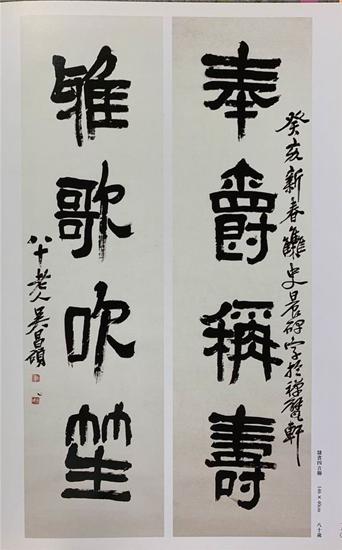 癸亥新春集史晨碑字於禪甓軒
奉爵稱壽
雅歌吹笙
八十老人吳昌碩
隸書四言聯 八十歲